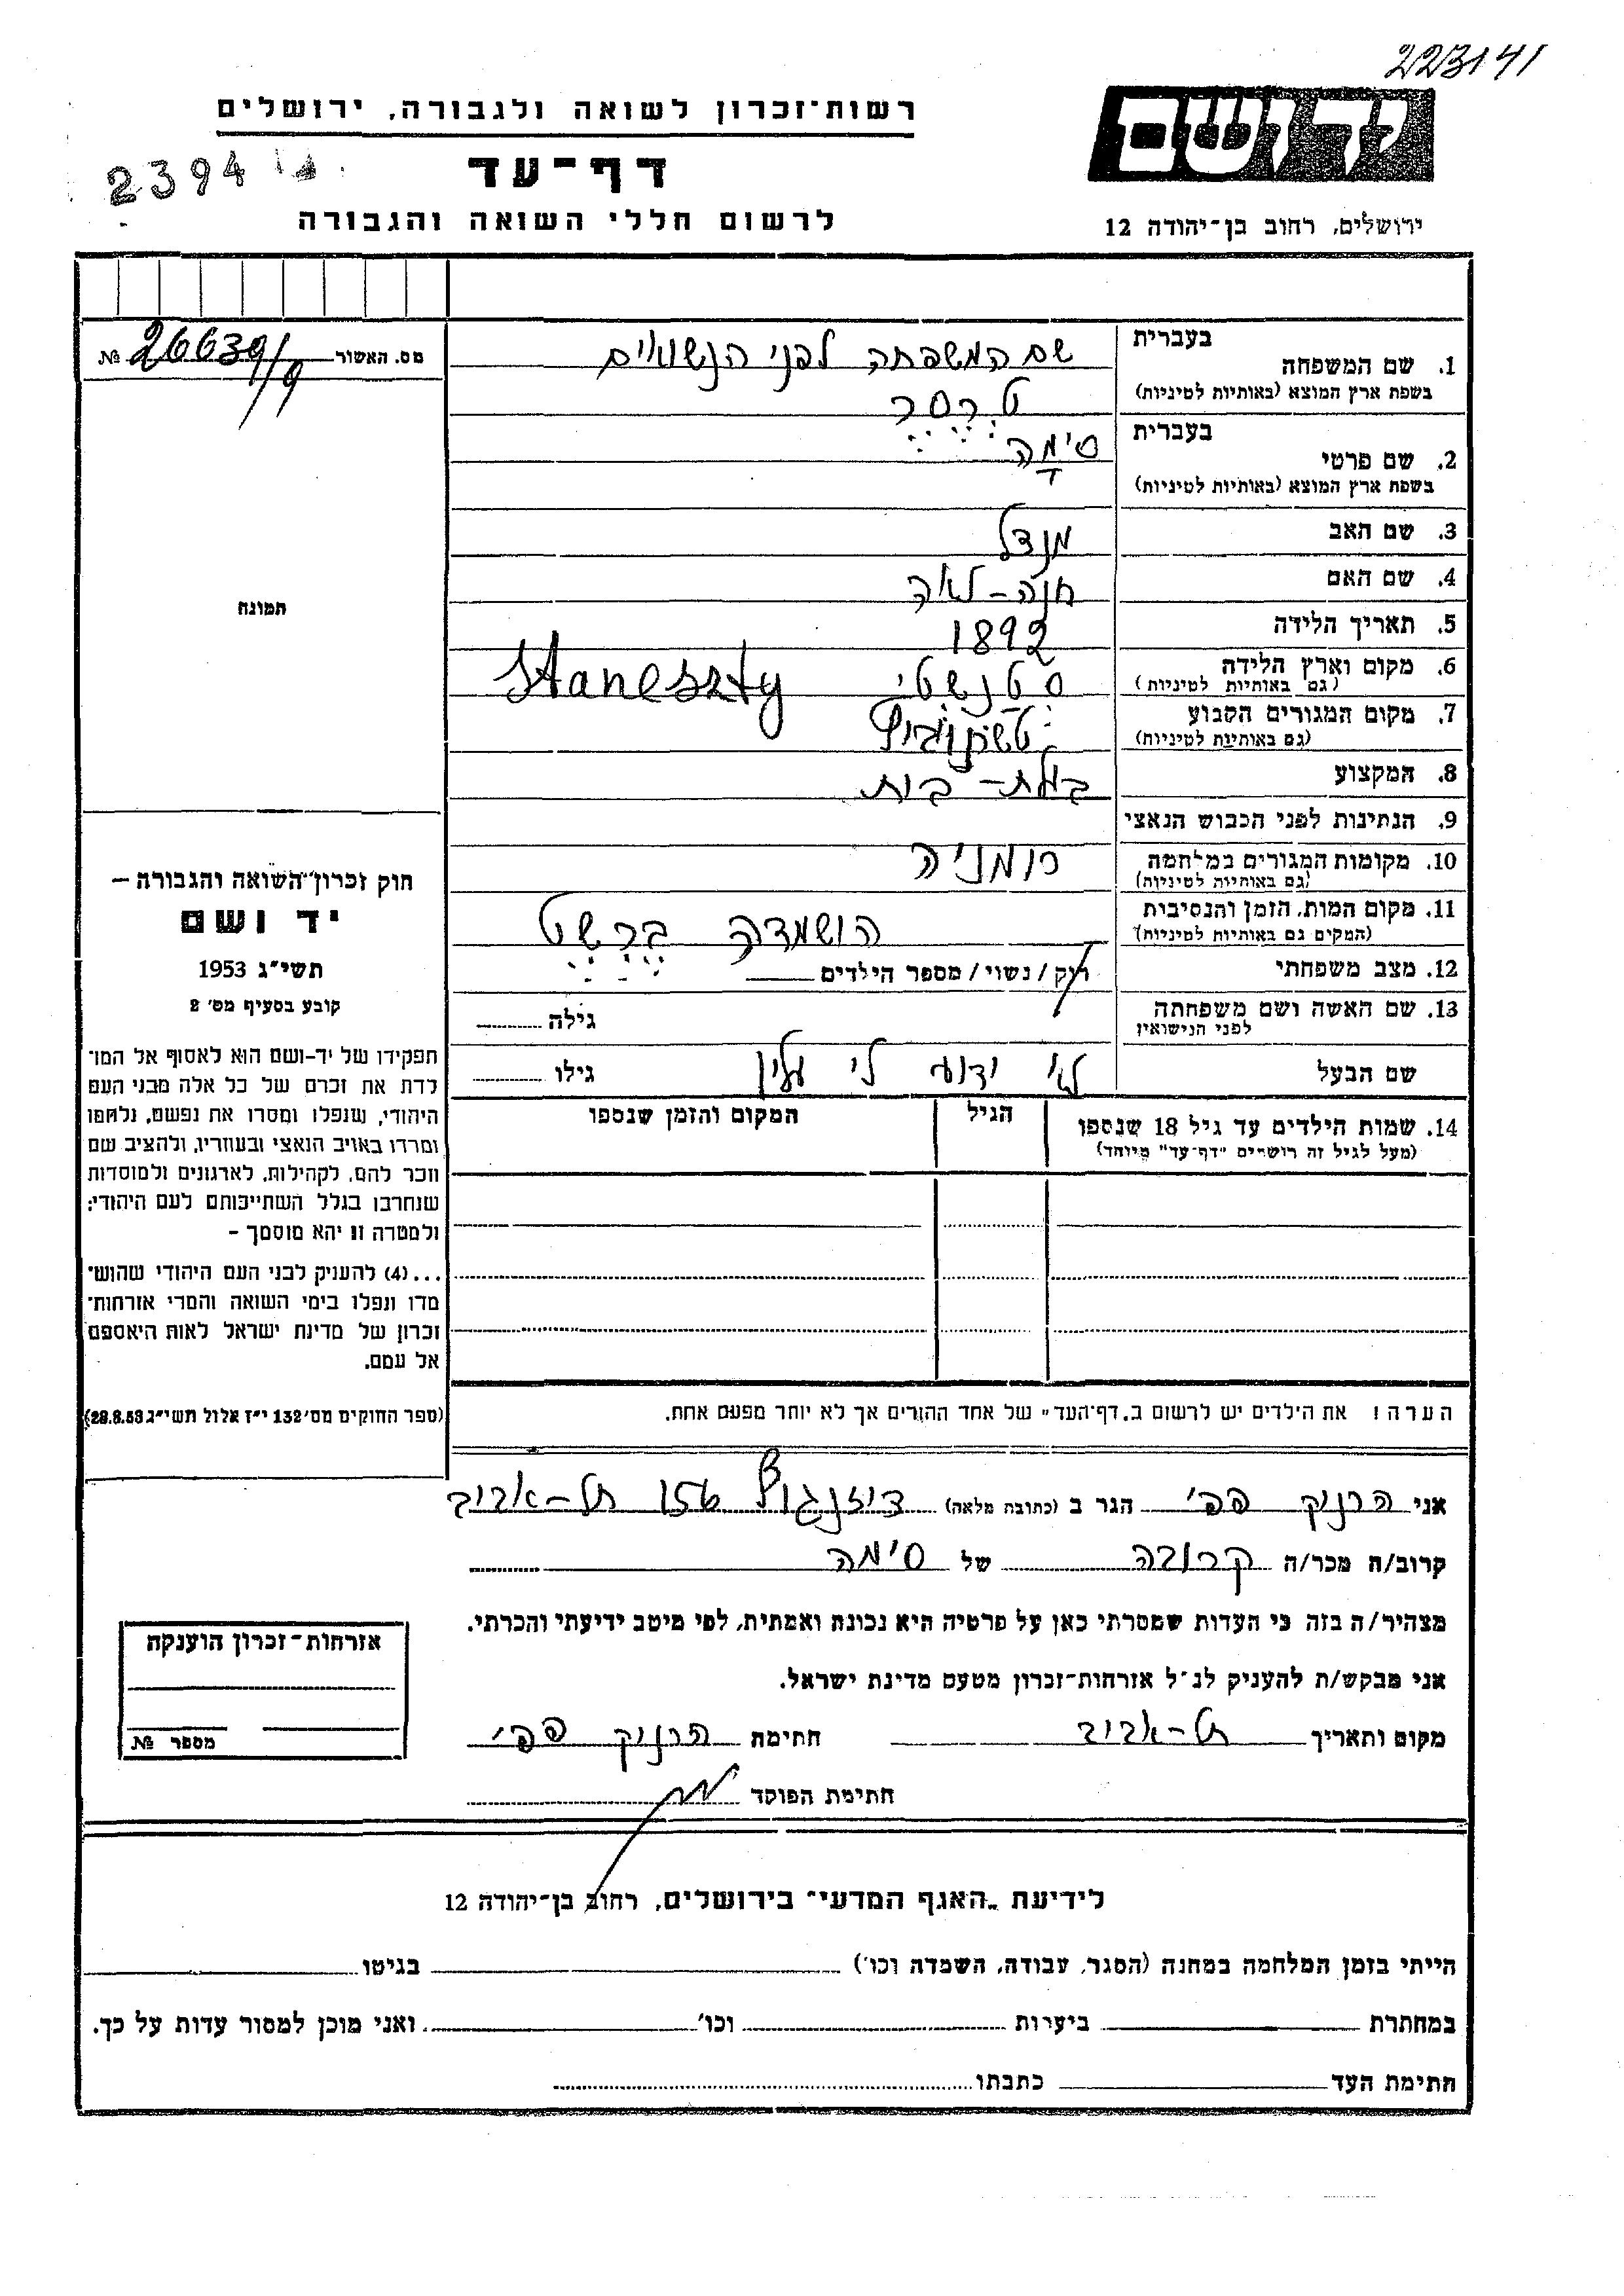 223141
יד ושם
ירושלים, רחוב בן-יהודה 12
רשות-זכרון לשואה ולגבורה, ירושלים
דף-עד
2394
לרשום חללי השואה והגבורה
מס. האשור № 26639/9
1. שם המשפחה בעברית שם המשפחה לפני הנשואים
בשפת ארץ המוצא (באותיות לטיניות) טרסר
2. שם פרטי בעברית סימה
בשפת ארץ המוצא (באותיות לטיניות)
3. שם האב מנדל
4. שם האם חנה-לאה
5. תאריך הלידה 1892
6. מקום וארץ הלידה סטנשטי Staneszty
(גם באותיות לטיניות)
7. מקום המגורים הקבוע
(גם באותיות לטיניות)
8. המקצוע בעלת-בית
9. הנתינות לפני הכבוש הנאצי
10. מקומות המגורים במלחמה רומניה
(גם באותיות לטיניות)
11. מקום המות, הזמן והנסיבות הושמדה ברשט
(המקום גם באותיות לטיניות)
12. מצב משפחתי רוק/נשוי/מספר הילדים
13. שם האשה ושם משפחתה גילה
לפני הנישואין
שם הבעל לא ידוע לי עליו גילו
14. שמות הילדים עד גיל 18 שנספו הגיל המקום והזמן שנספו
(מעל לגיל זה רושמים "דף-עד" מיוחד)
הערה! את הילדים יש לרשום ב"דף-העד" של אחד ההורים אך לא יותר מפעם אחת.
תמונה
חוק זכרון השואה והגבורה –
יד ושם
תשי"ג 1953
קובע בסעיף מס' 2
תפקידו של יד-ושם הוא לאסוף אל המו־
לדת את זכרם של כל אלה מבני העם
היהודי, שנפלו ומסרו את נפשם, נלחמו
ומרדו באויב הנאצי ובעוזריו, ולהציב שם
וזכר להם, לקהילות, לארגונים ולמוסדות
שנחרבו בגלל השתייכותם לעם היהודי;
ולמטרה זו יהא מוסמך –
...(4) להעניק לבני העם היהודי שהוש־
מדו ונפלו בימי השואה והמרי אזרחות־
זכרון של מדינת ישראל לאות היאספם
אל עמם.
(ספר החוקים מס' 132 י"ז אלול תשי"ג 28.8.53)
אני הרניק פפי הגר ב (כתובה מלאה) דיזנגוף 156 תל-אביב
קרוב/ה מכר/ה קרובה של סימה
מצהיר/ה בזה כי העדות שמסרתי כאן על פרטיה היא נכונה ואמתית, לפי מיטב ידיעתי והכרתי.
אני מבקש/ת להעניק לנ"ל אזרחות-זכרון מטעם מדינת ישראל.
מקום ותאריך תל-אביב חתימת הרניק פפי
חתימת הפוקד
אזרחות-זכרון הוענקה
מספר №
לידיעת "האגף המדעי" בירושלים, רחוב בן-יהודה 12
הייתי בזמן המלחמה במחנה (הסגר, עבודה, השמדה וכו') בגיטו
במחתרת ביערות וכו' ואני מוכן למסור עדות על כך.
חתימת העד כתבתו